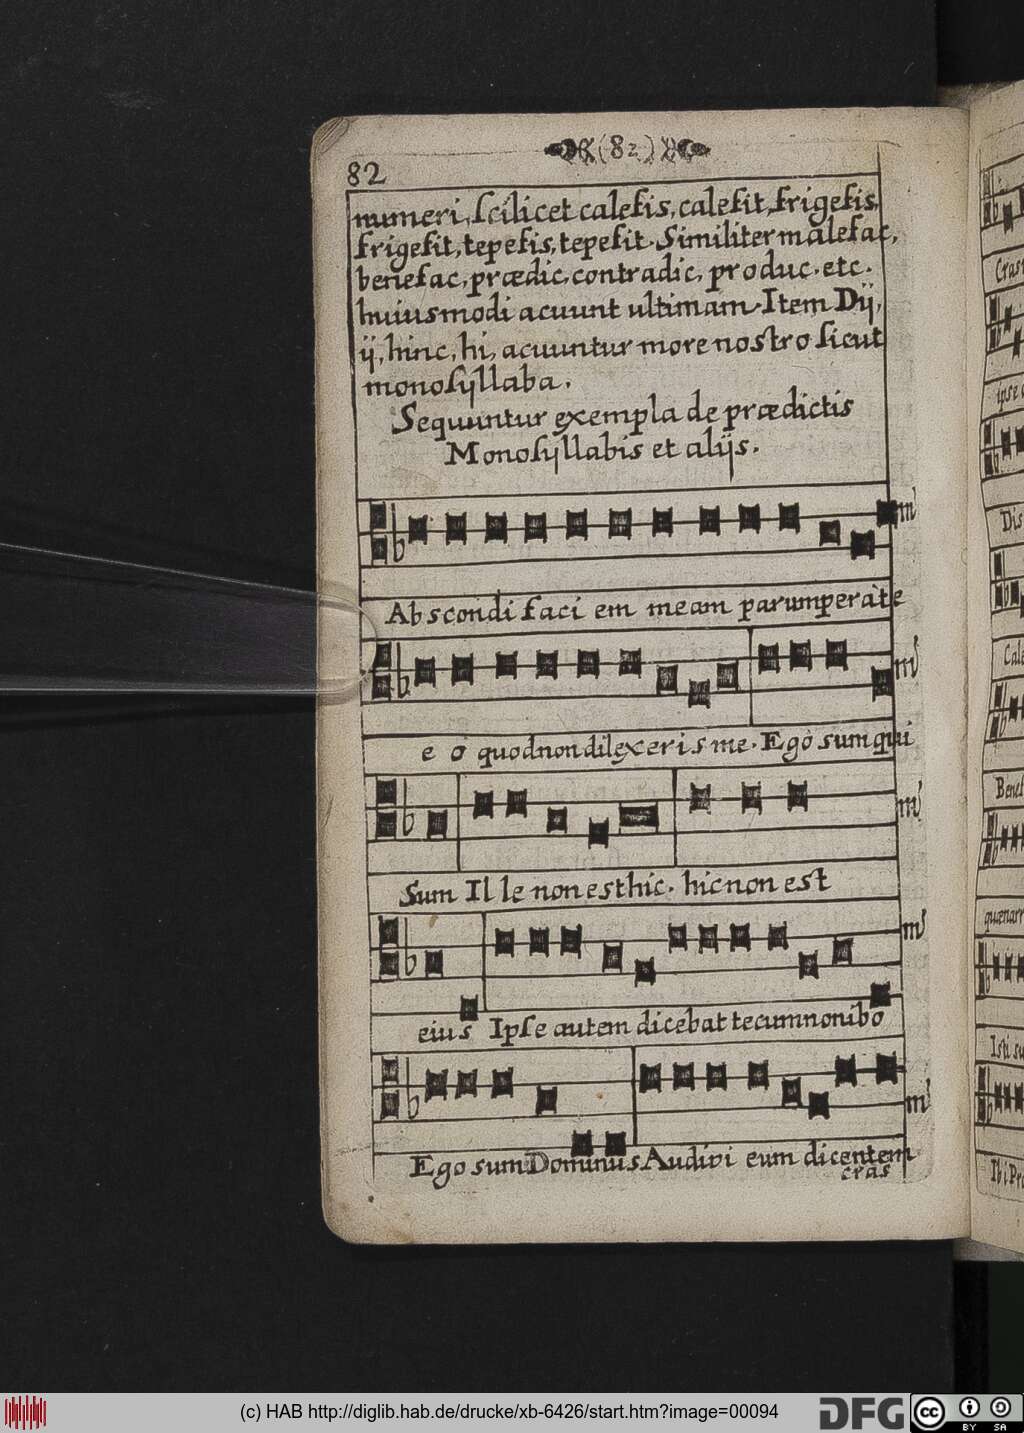 (82)
82
numeri, scilicet calefis, calefit, frigefis,
frigefit, tepefis, tepefit. Similiter malefac,
benefac, prædic, contradic, produc. etc.
huiusmodi acuunt ultimam. Item Dij,
ij, hinc, hi, acuuntur more nostro sicut
monosyllaba.
Sequuntur exempla de prædictis
Monosyllabis et alijs.
Abscondi faci em meam parumper à te
e o quod non dilexeris me. Ego sum qui
Sum Il le non est hic. hic non est
eius Ipse autem dicebat tecum non ibo
Ego sum Dominus Audivi eum dicentem
cras
Cras
ipse
Dis
Cale
Benef
quænarr
Isti su
Ibi Pro
(c) HAB http://diglib.hab.de/drucke/xb-6426/start.htm?image=00094
DFG
cc
BY SA